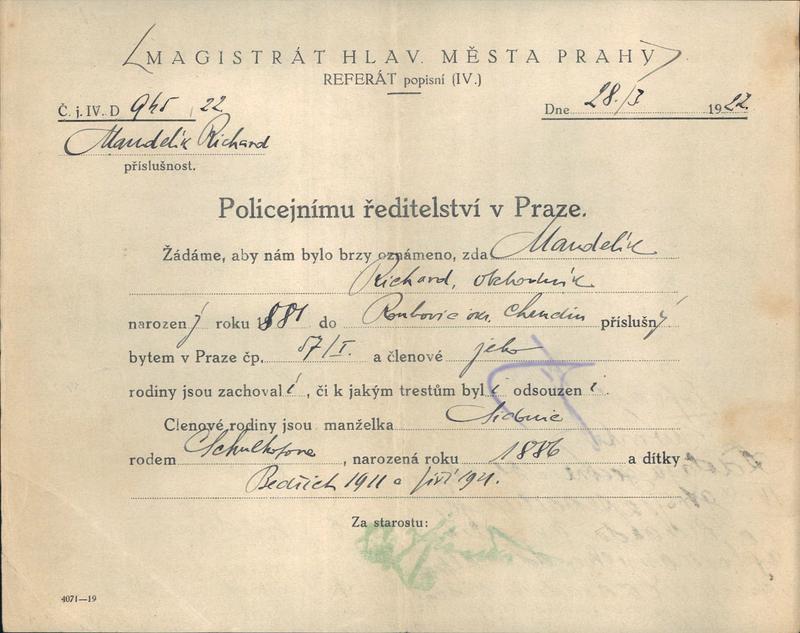 MAGISTRÁT HLAV. MĚSTA PRAHY
REFERÁT popisní (IV.)
Č. j. IV. D 945 22 Dne 28./I 1922
Mandelík Richard
příslušnost.
Policejnímu ředitelství v Praze.
Žádáme, aby nám bylo brzy oznámeno, zda Mandelík
Richard, obchodník
narozený roku 1881 do okr. příslušný
bytem v Praze čp. 57/I. a členové jeho
rodiny jsou zachovalí, či k jakým trestům byli odsouzeni.
Clenové rodiny jsou manželka Sidonie
rodem Schulhofova, narozená roku 1886 a dítky
Bedřich 1911 a Jiří 1921.
Za starostu:
4071—19